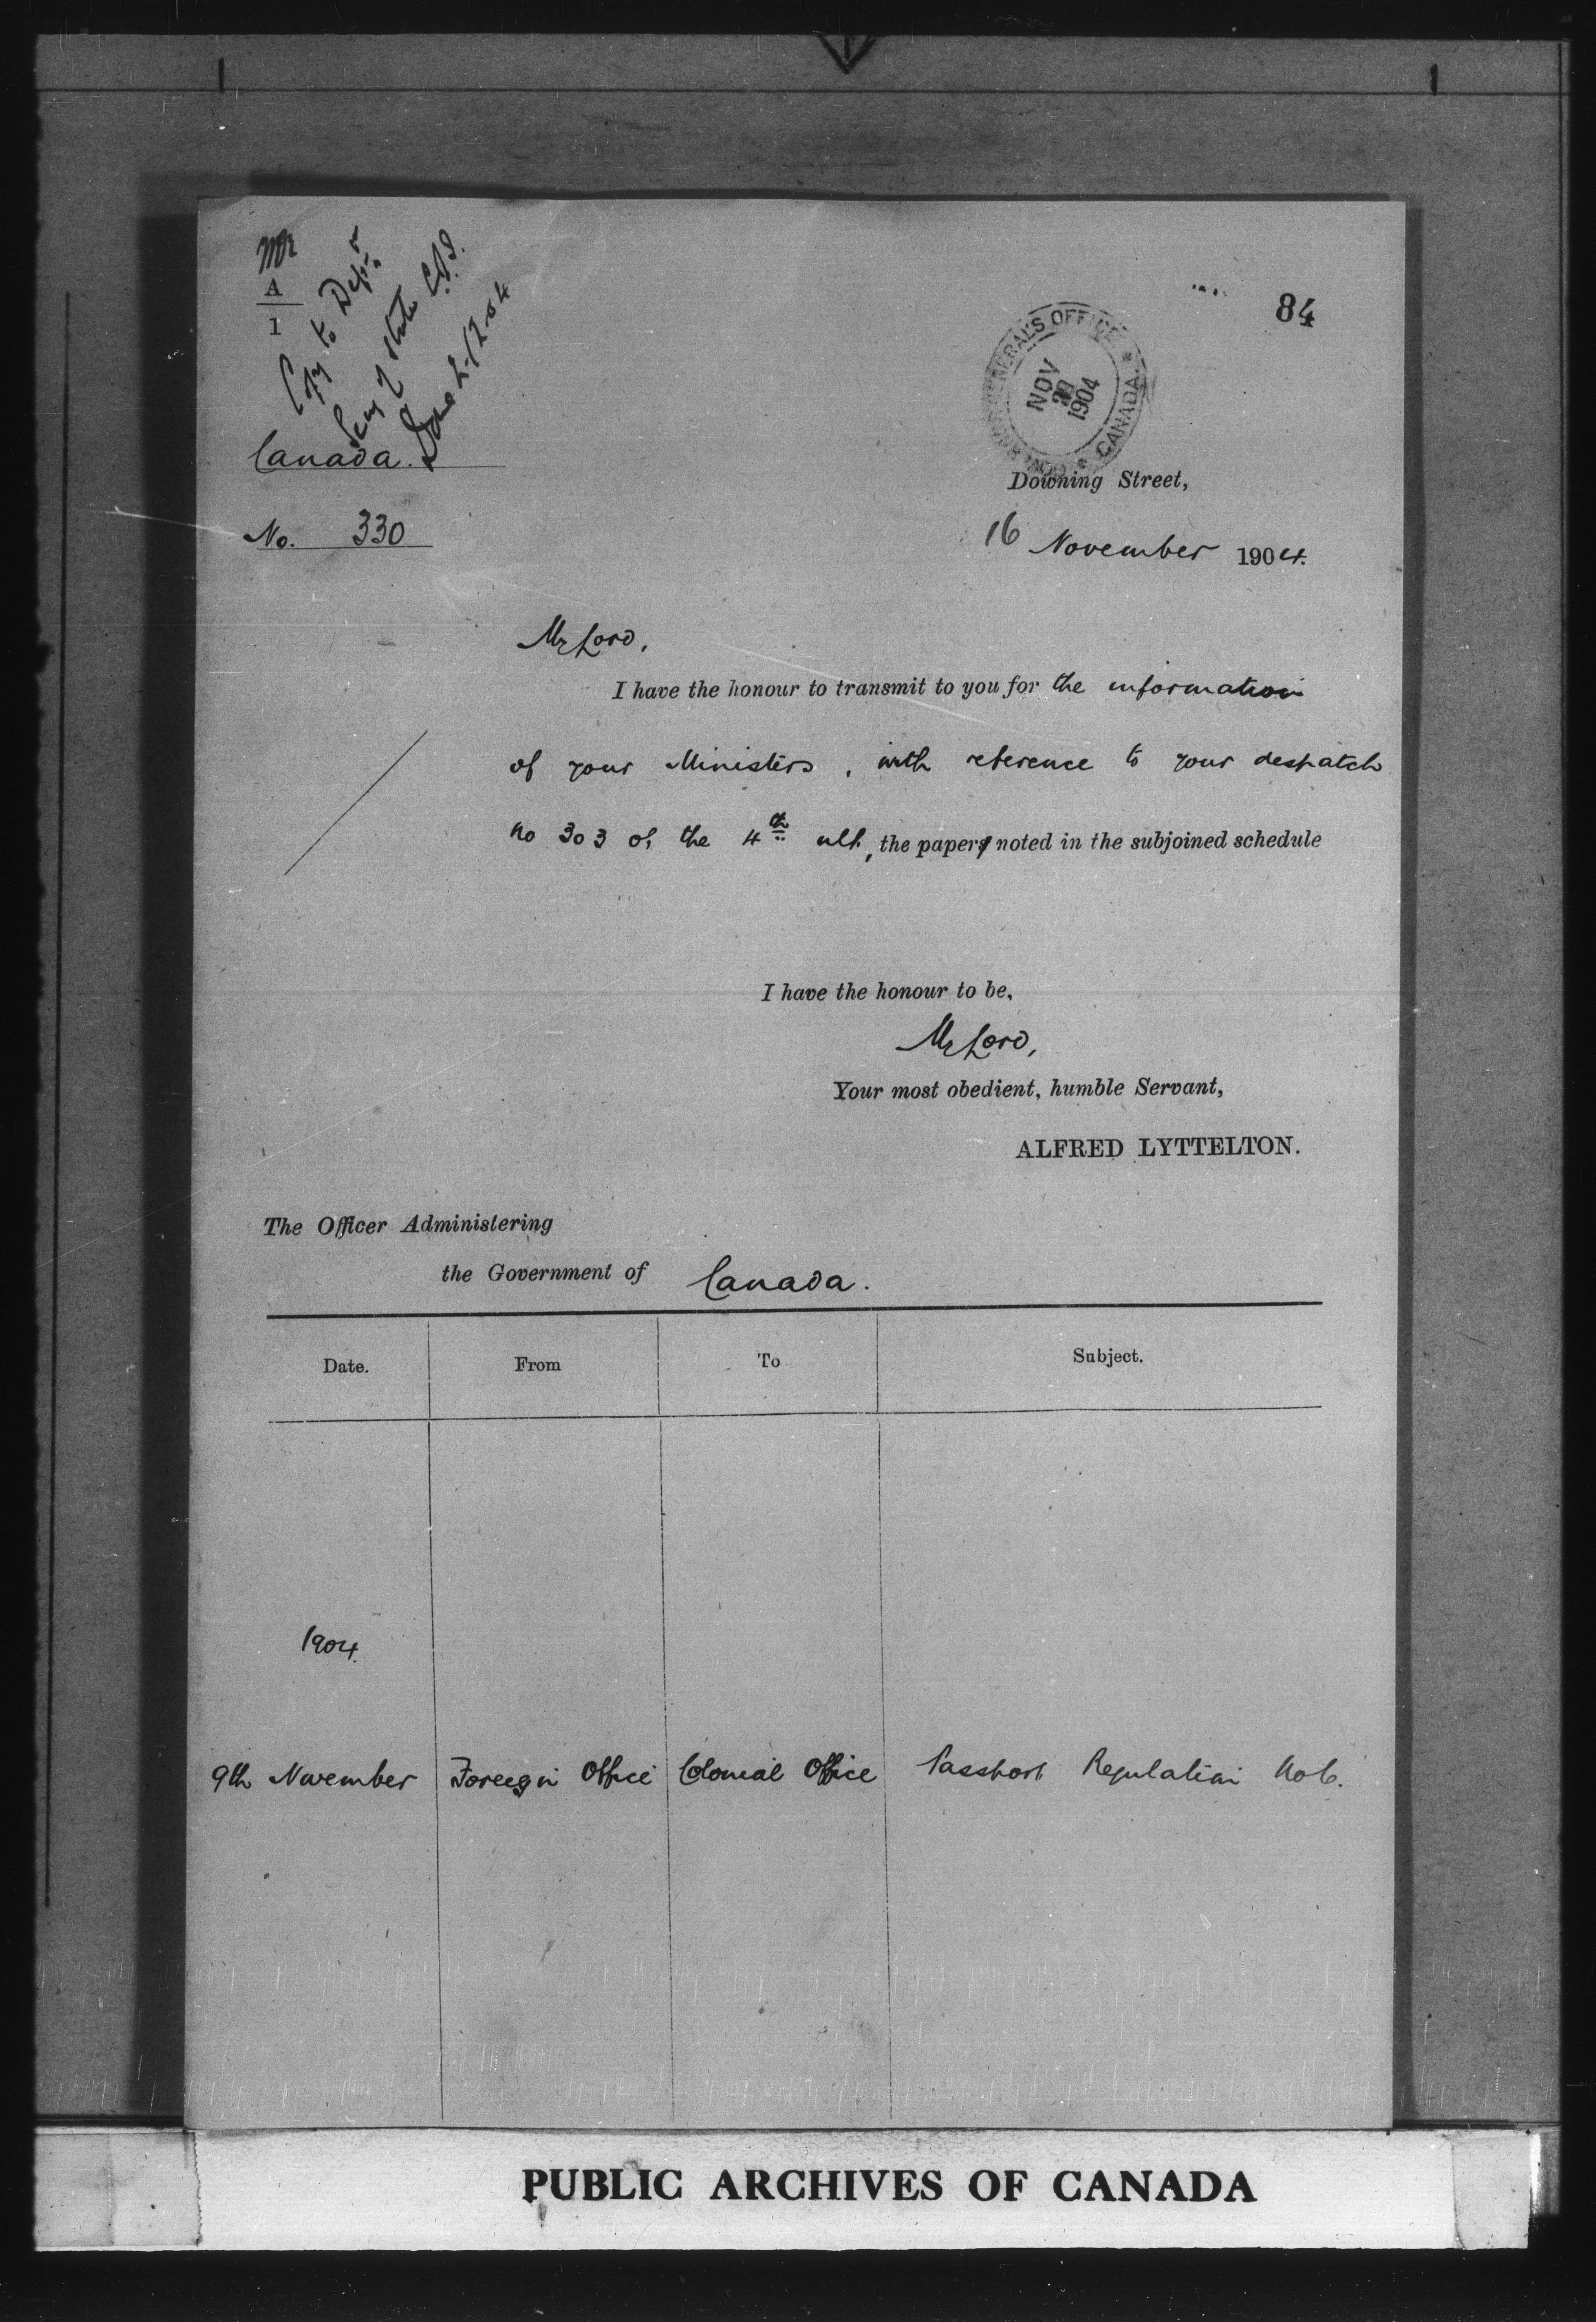 Mr
A
1
Copy to Dept of
Secy of State
Done 2-12-04
84
GENERAL'S OFFICE * CANADA *
NOV
1904
Canada.
Downing Street,
No. 330
16 November 1904.
My Lord,
I have the honour to transmit to you for the information
of your Ministers, with reference to your despatch
no 303 of the 4th ult, the paper noted in the subjoined schedule
I have the honour to be,
My Lord,
Your most obedient, humble Servant,
ALFRED LYTTELTON.
The Officer Administering
the Government of Canada.
Date. From To Subject.
1904.
9th November Foreign Office Colonial Office Passport Regulation No 6.
PUBLIC ARCHIVES OF CANADA